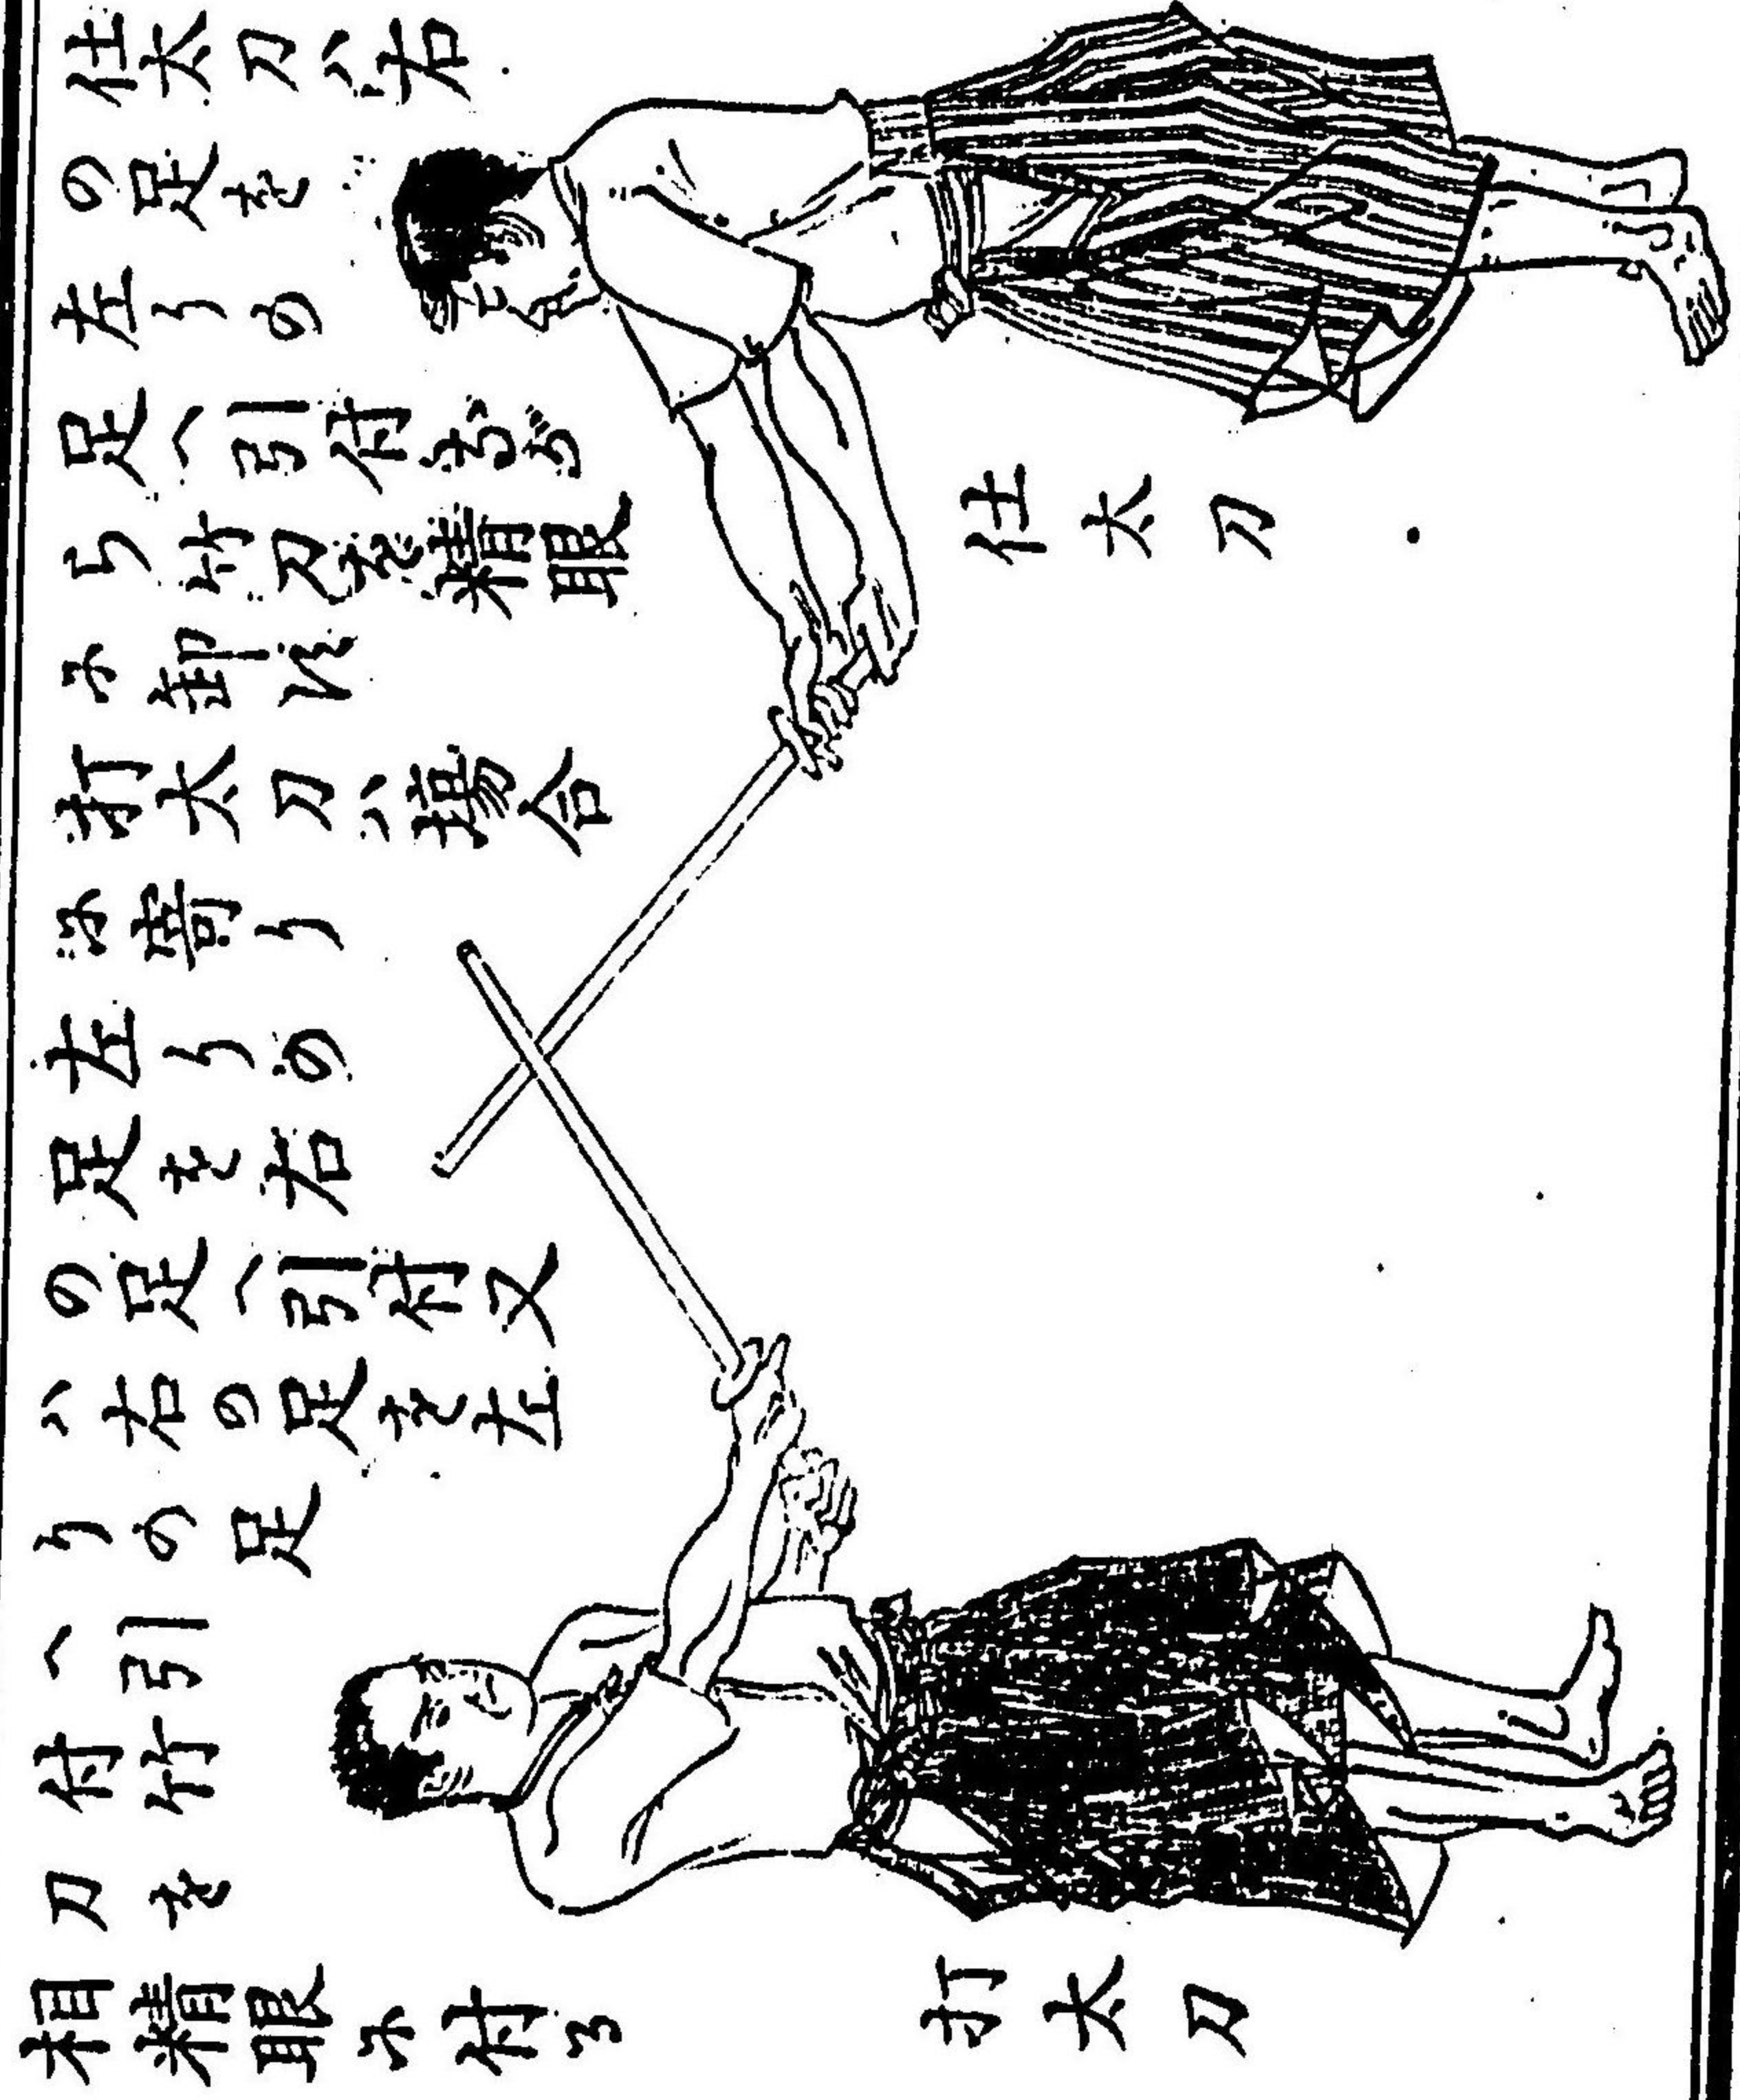 仕太刀ハ右
の足を
左りの
足へ引付なが
ら竹刀を精眼
に
打太刀ハ 合
に り
左りの
足を右
の足へ引付又
ハ右の足を左
りの足
へ引
付竹
刀を
相精眼に付る
仕太刀
打太刀